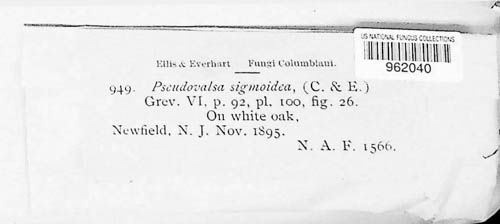 US NATIONAL FUNGUS COLLECTIONS
962040
Ellis & Everhart Fungi Columbiani.
949. Pseudovalsa sigmoidea, (C. & E.)
Grev. VI, p. 92, pl. 100, fig. 26.
On white oak,
Newfield, N. J. Nov. 1895.
N. A. F. 1566.